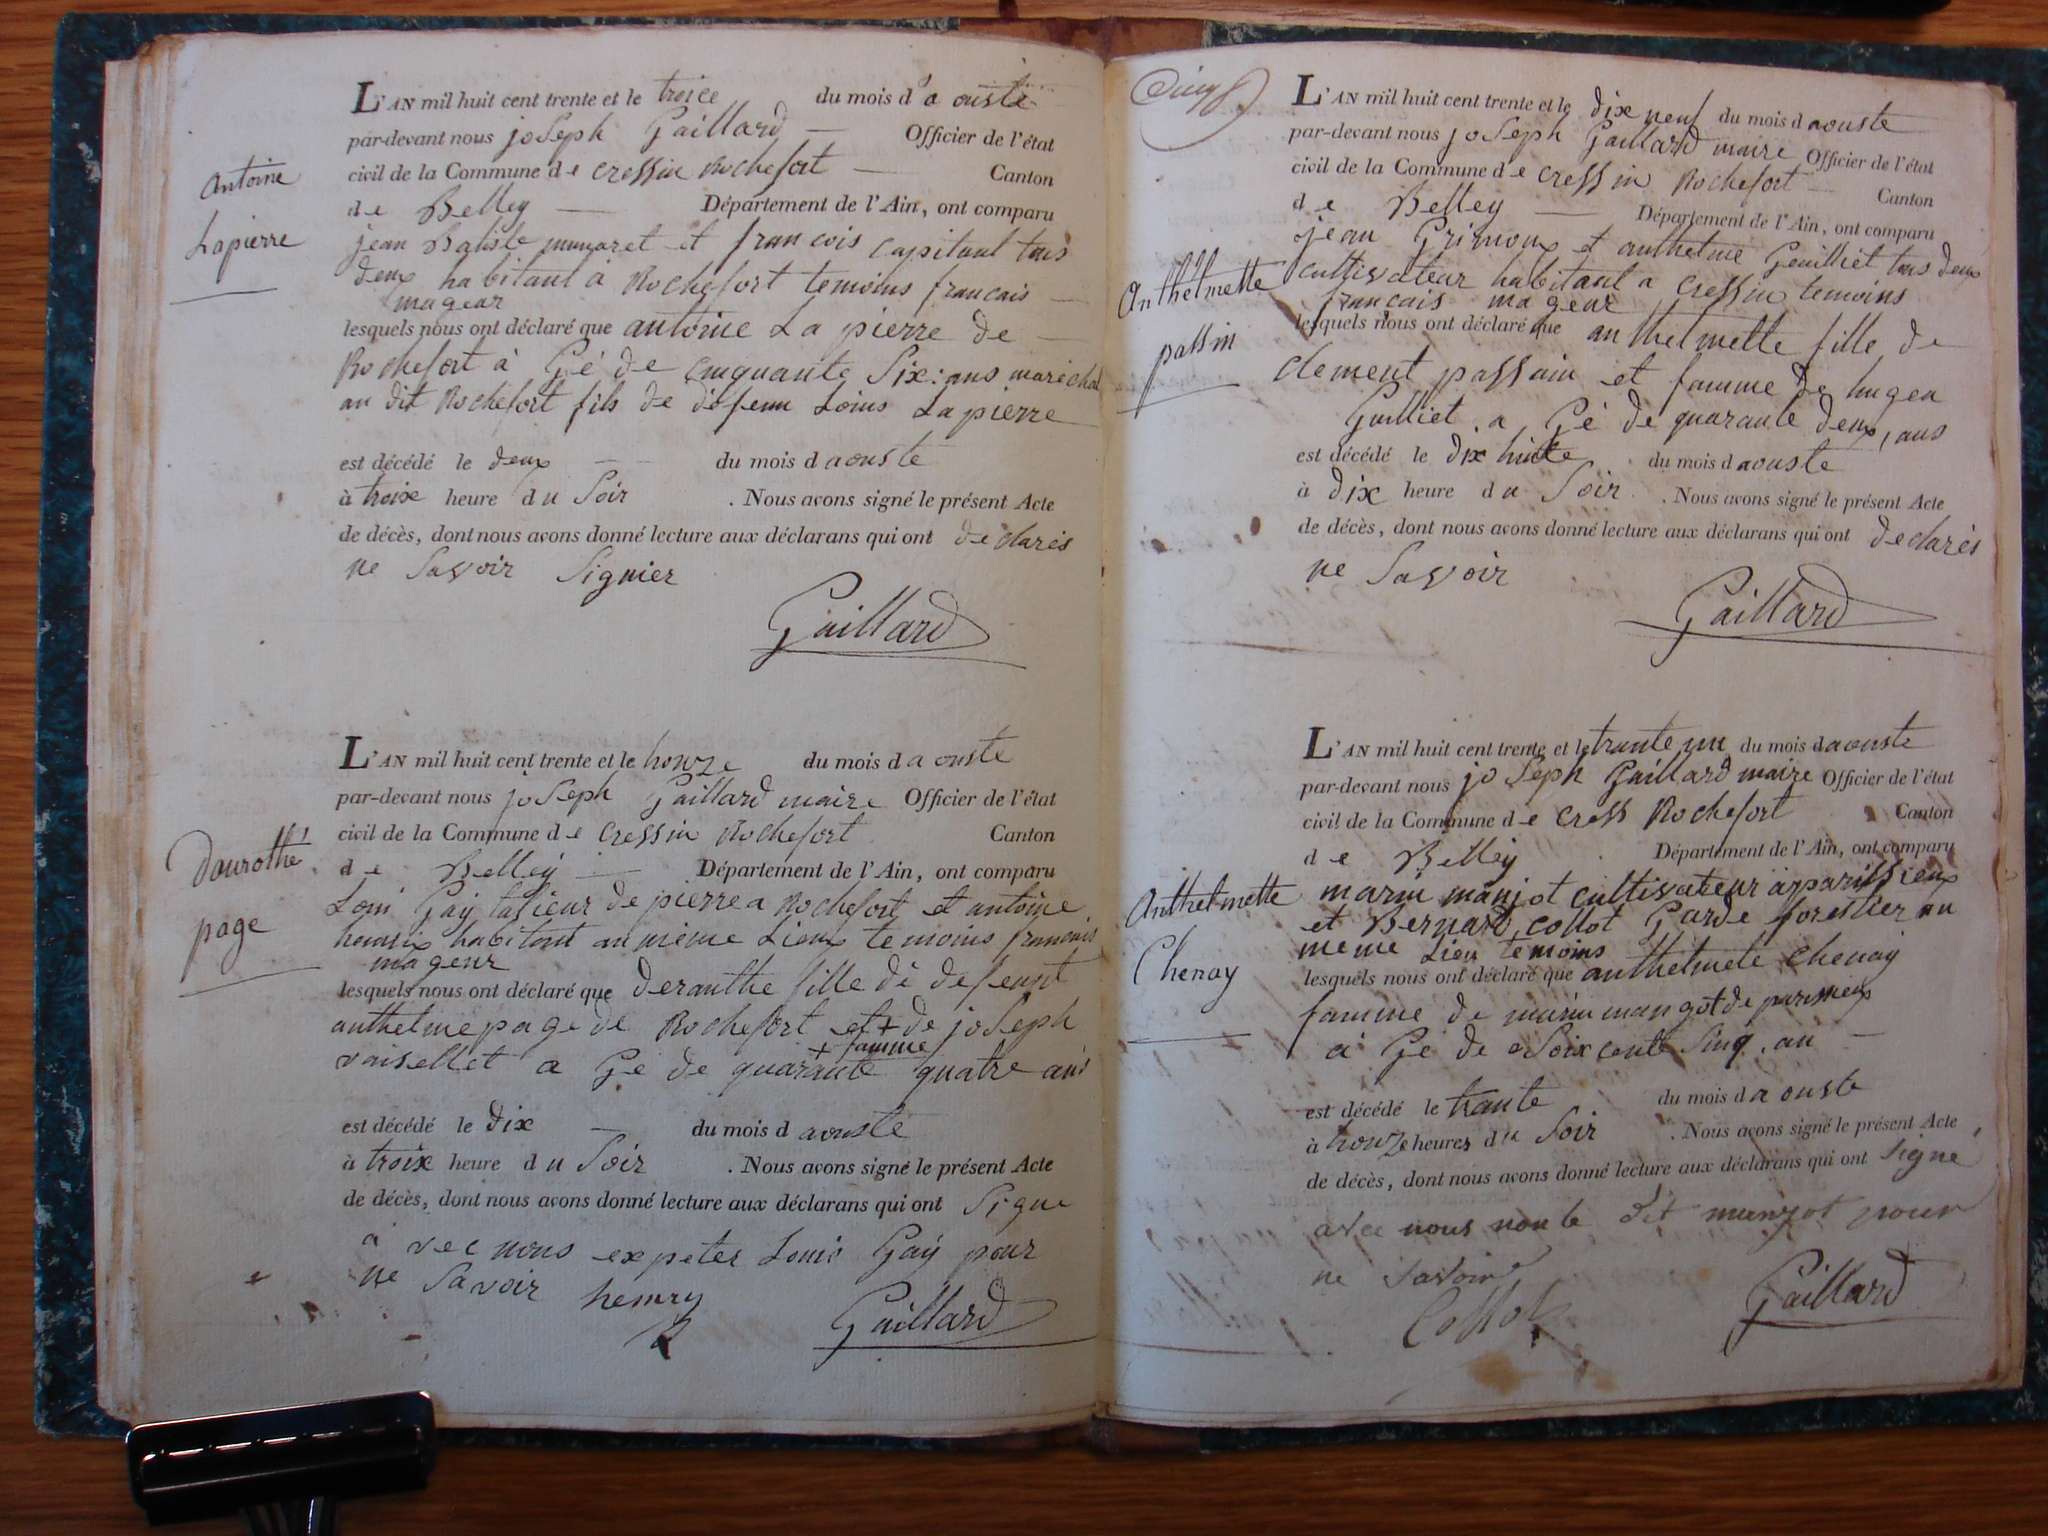 L'AN mil huit cent trente et le troice du mois d'aouste
par-devant nous joseph Gaillard Officier de l'état
civil de la Commune de cressin Rochefort Canton
de Belley Département de l'Ain, ont comparu
jean Batiste et francois capitant tous
deux habitant à Rochefort temoins francais
mageur
lesquels nous ont déclaré que antoine La pierre de
Rochefort à Gé de cinquante Six ans marechal
au dit Rochefort fils de defenu Loius Lapierre
Antoine
Lapierre
est décédé le deux du mois d aouste
à troix heure du Soir . Nous avons signé le présent Acte
de décès, dont nous avons donné lecture aux déclarans qui ont declarés
ne Savoir Signier
Gaillard
L'AN mil huit cent trente et le honze du mois d aouste
par-devant nous joseph Gaillard maire Officier de l'état
civil de la Commune de cressin Rochefort Canton
de Belley Département de l'Ain, ont comparu
Loui Gay talieur de pierre a Rochefort et antoine
habitant au même Lieux temoins francais
mageur
lesquels nous ont déclaré que deranthe fille de defeunt
anthelme page de Rochefort et + de joseph
+ famme
vaisellet a Gé de quarante quatre ans
Dourothé
page
est décédé le dix du mois d aouste
à troix heure du Soir . Nous avons signé le présent Acte
de décès, dont nous avons donné lecture aux déclarans qui ont Signe
a vec nous expeter Louis Gay pour
ne Savoir
henry
Gaillard
L'AN mil huit cent trente et le dix neuf du mois d aouste
par-devant nous joseph Gaillard maire Officier de l'état
civil de la Commune de cressin Rochefort Canton
de Belley Département de l'Ain, ont comparu
jean Grimoux et anthelme Genilliet tous deux
cultivateur habitant a cressin temoins
francais mageur
lesquels nous ont déclaré que anthelmette fille de
clement passain et famme de hugen
Guilliet a Gé de quarante deux ans
Anthelmette
passin
est décédé le dix huite du mois d aouste
à dix heure du Soir . Nous avons signé le présent Acte
de décès, dont nous avons donné lecture aux déclarans qui ont declarés
ne Savoir
Gaillard
L'AN mil huit cent trente et le trante un du mois d aouste
par-devant nous joseph Gaillard maire Officier de l'état
civil de la Commune de cress Rochefort Canton
de Belley Département de l'Ain, ont comparu
marin manjot cultivateur a parissieux
et Bernard collot Garde forestier au
meme Lieu temoins
lesquels nous ont déclaré que anthelmete chenay
famme de marin mangot de parissieux
a Gé de Soixcente Sinq an
Anthelmette
Chenay
est décédé le trante du mois d aouste
à honze heures du Soir . Nous avons signé le présent Acte
de décès, dont nous avons donné lecture aux déclarans qui ont Signé
avec nous non le dit manjot pour
ne Savoir
Collot
Gaillard